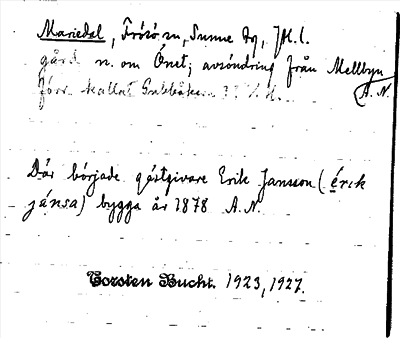 Mariedal, Frösö sn, Sunne tg, Jtl.
gård n. om Önet; avsöndring från Mellbyn
förr kallat Grubbåkern A. N.
Där började gästgivare Erik Jansson (érik
jánsa) bygga år 1878 A. N.
Torsten Bucht. 1923, 1927.